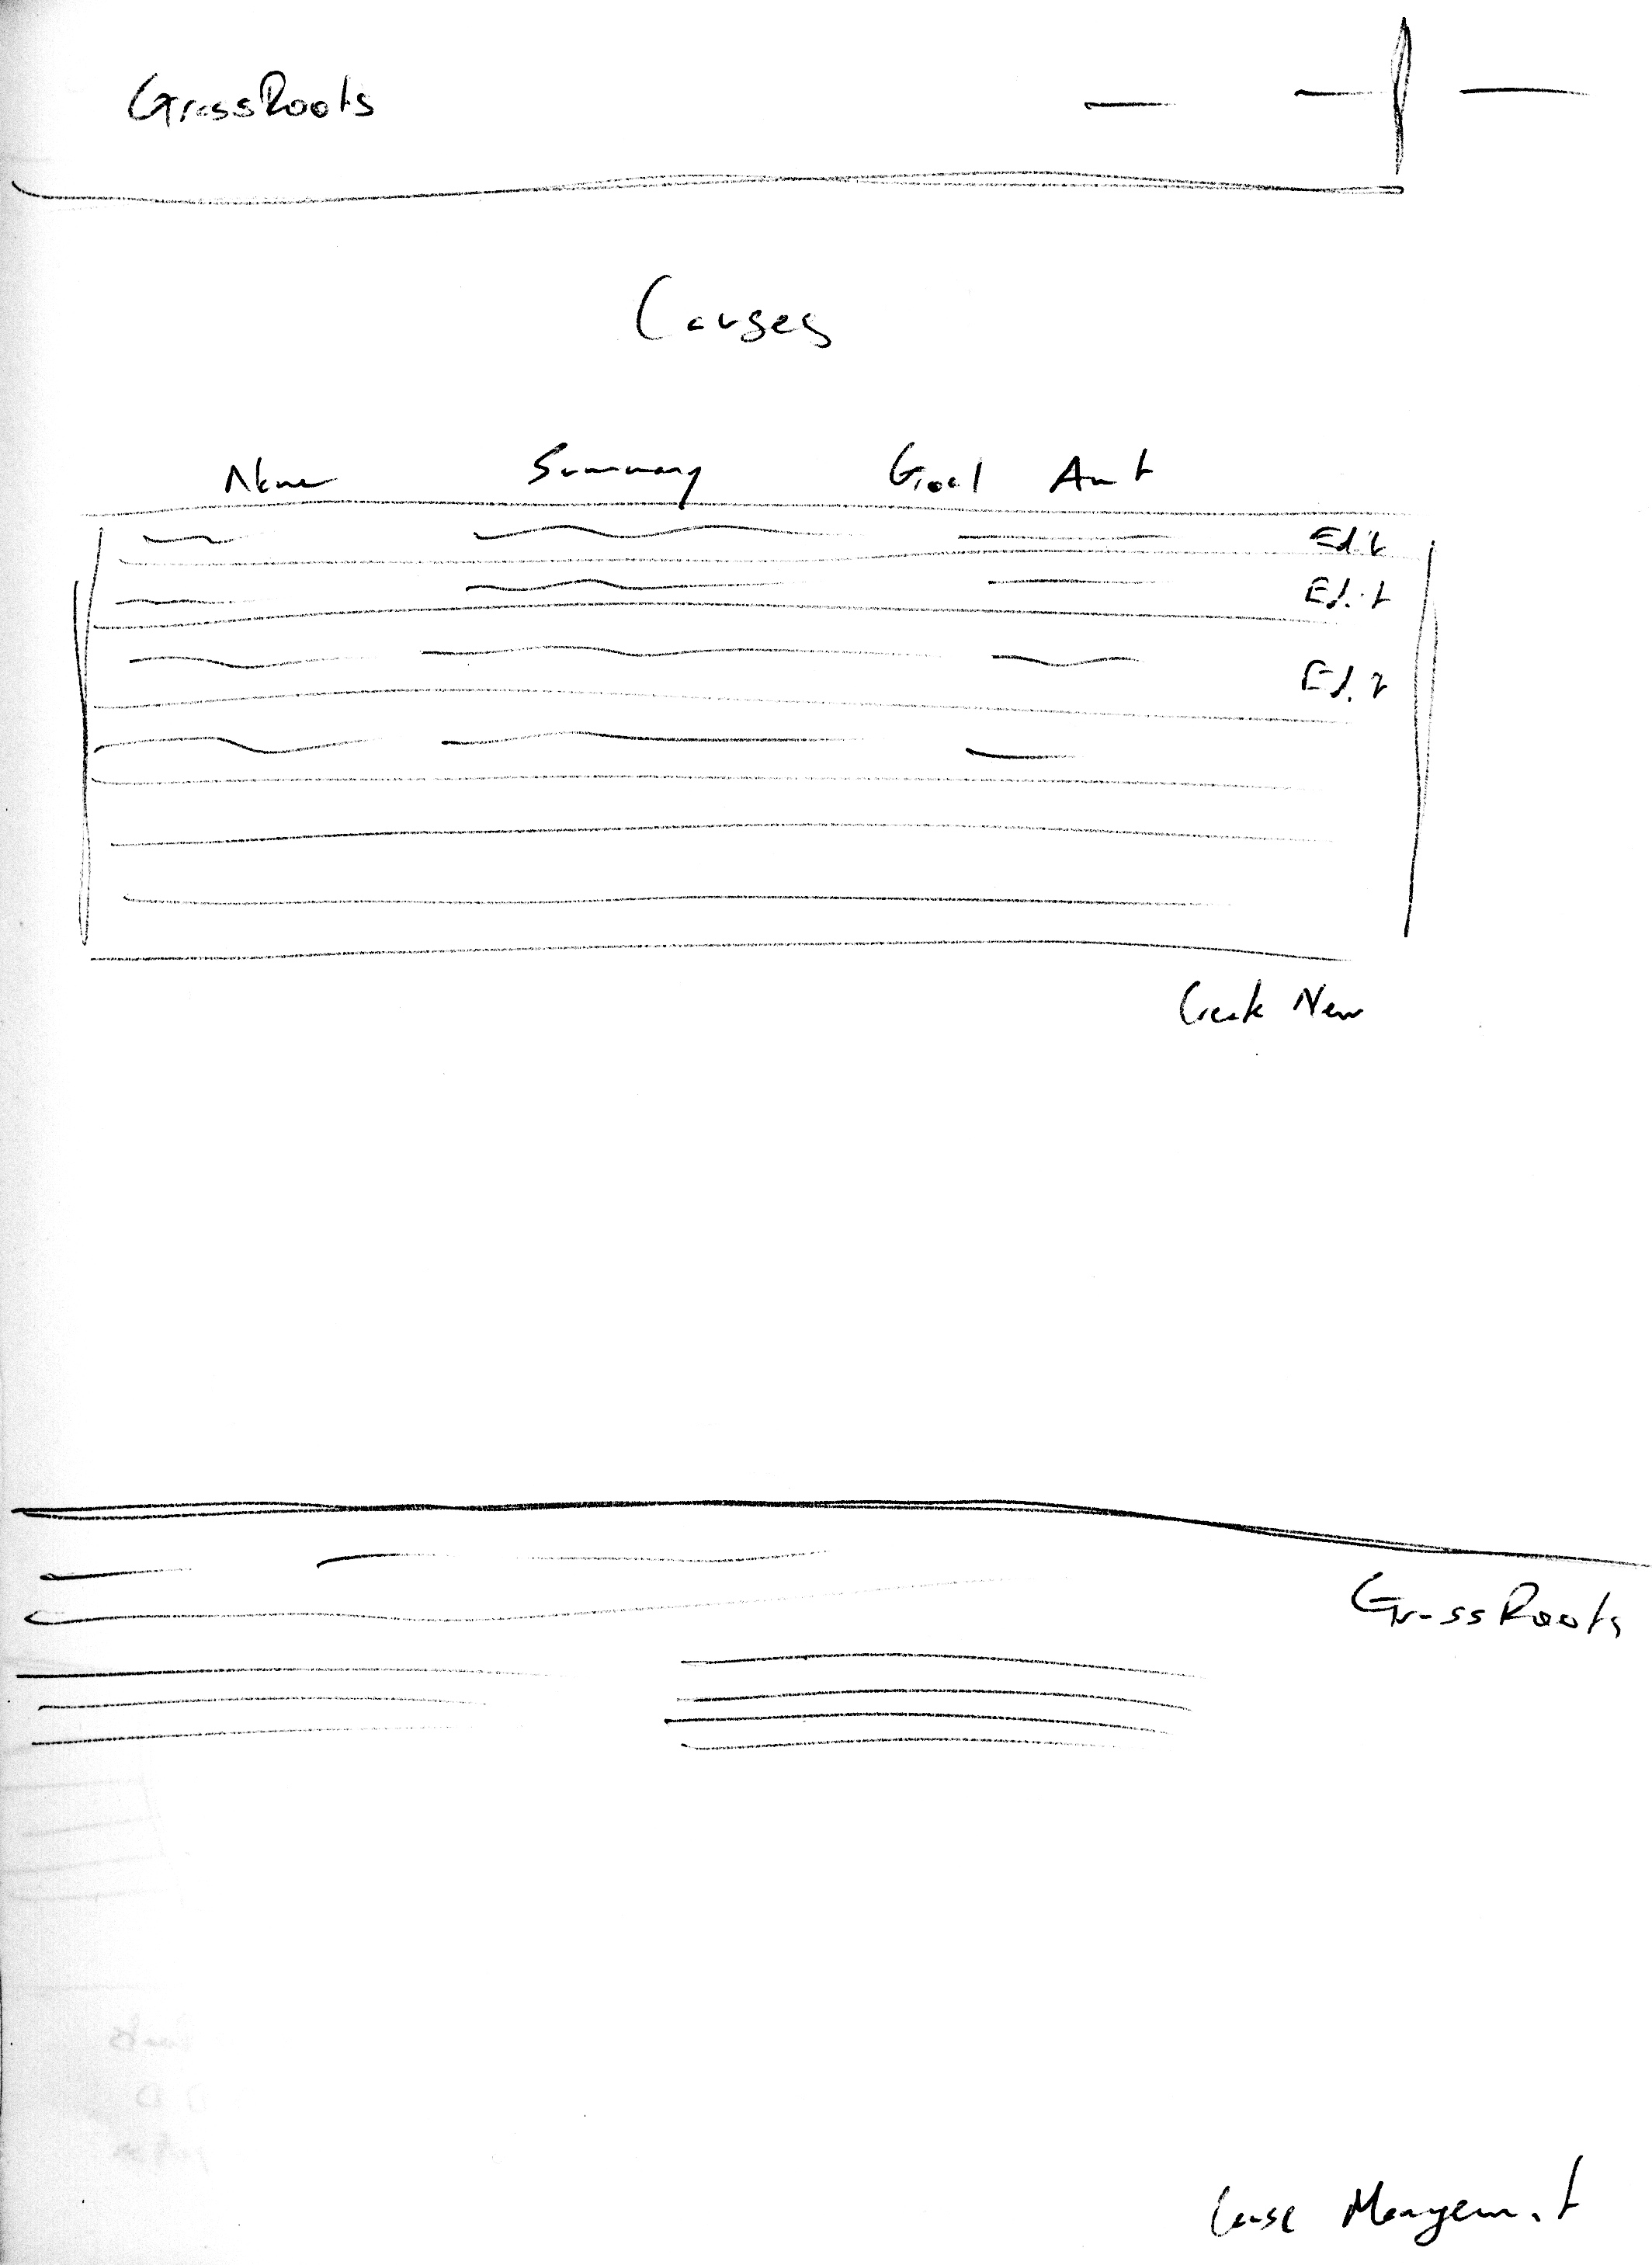 GrassRoots
Causes
Name Summary Goal Amt
Edit
Edit
Edit
Create New
GrassRoots
Cause Management